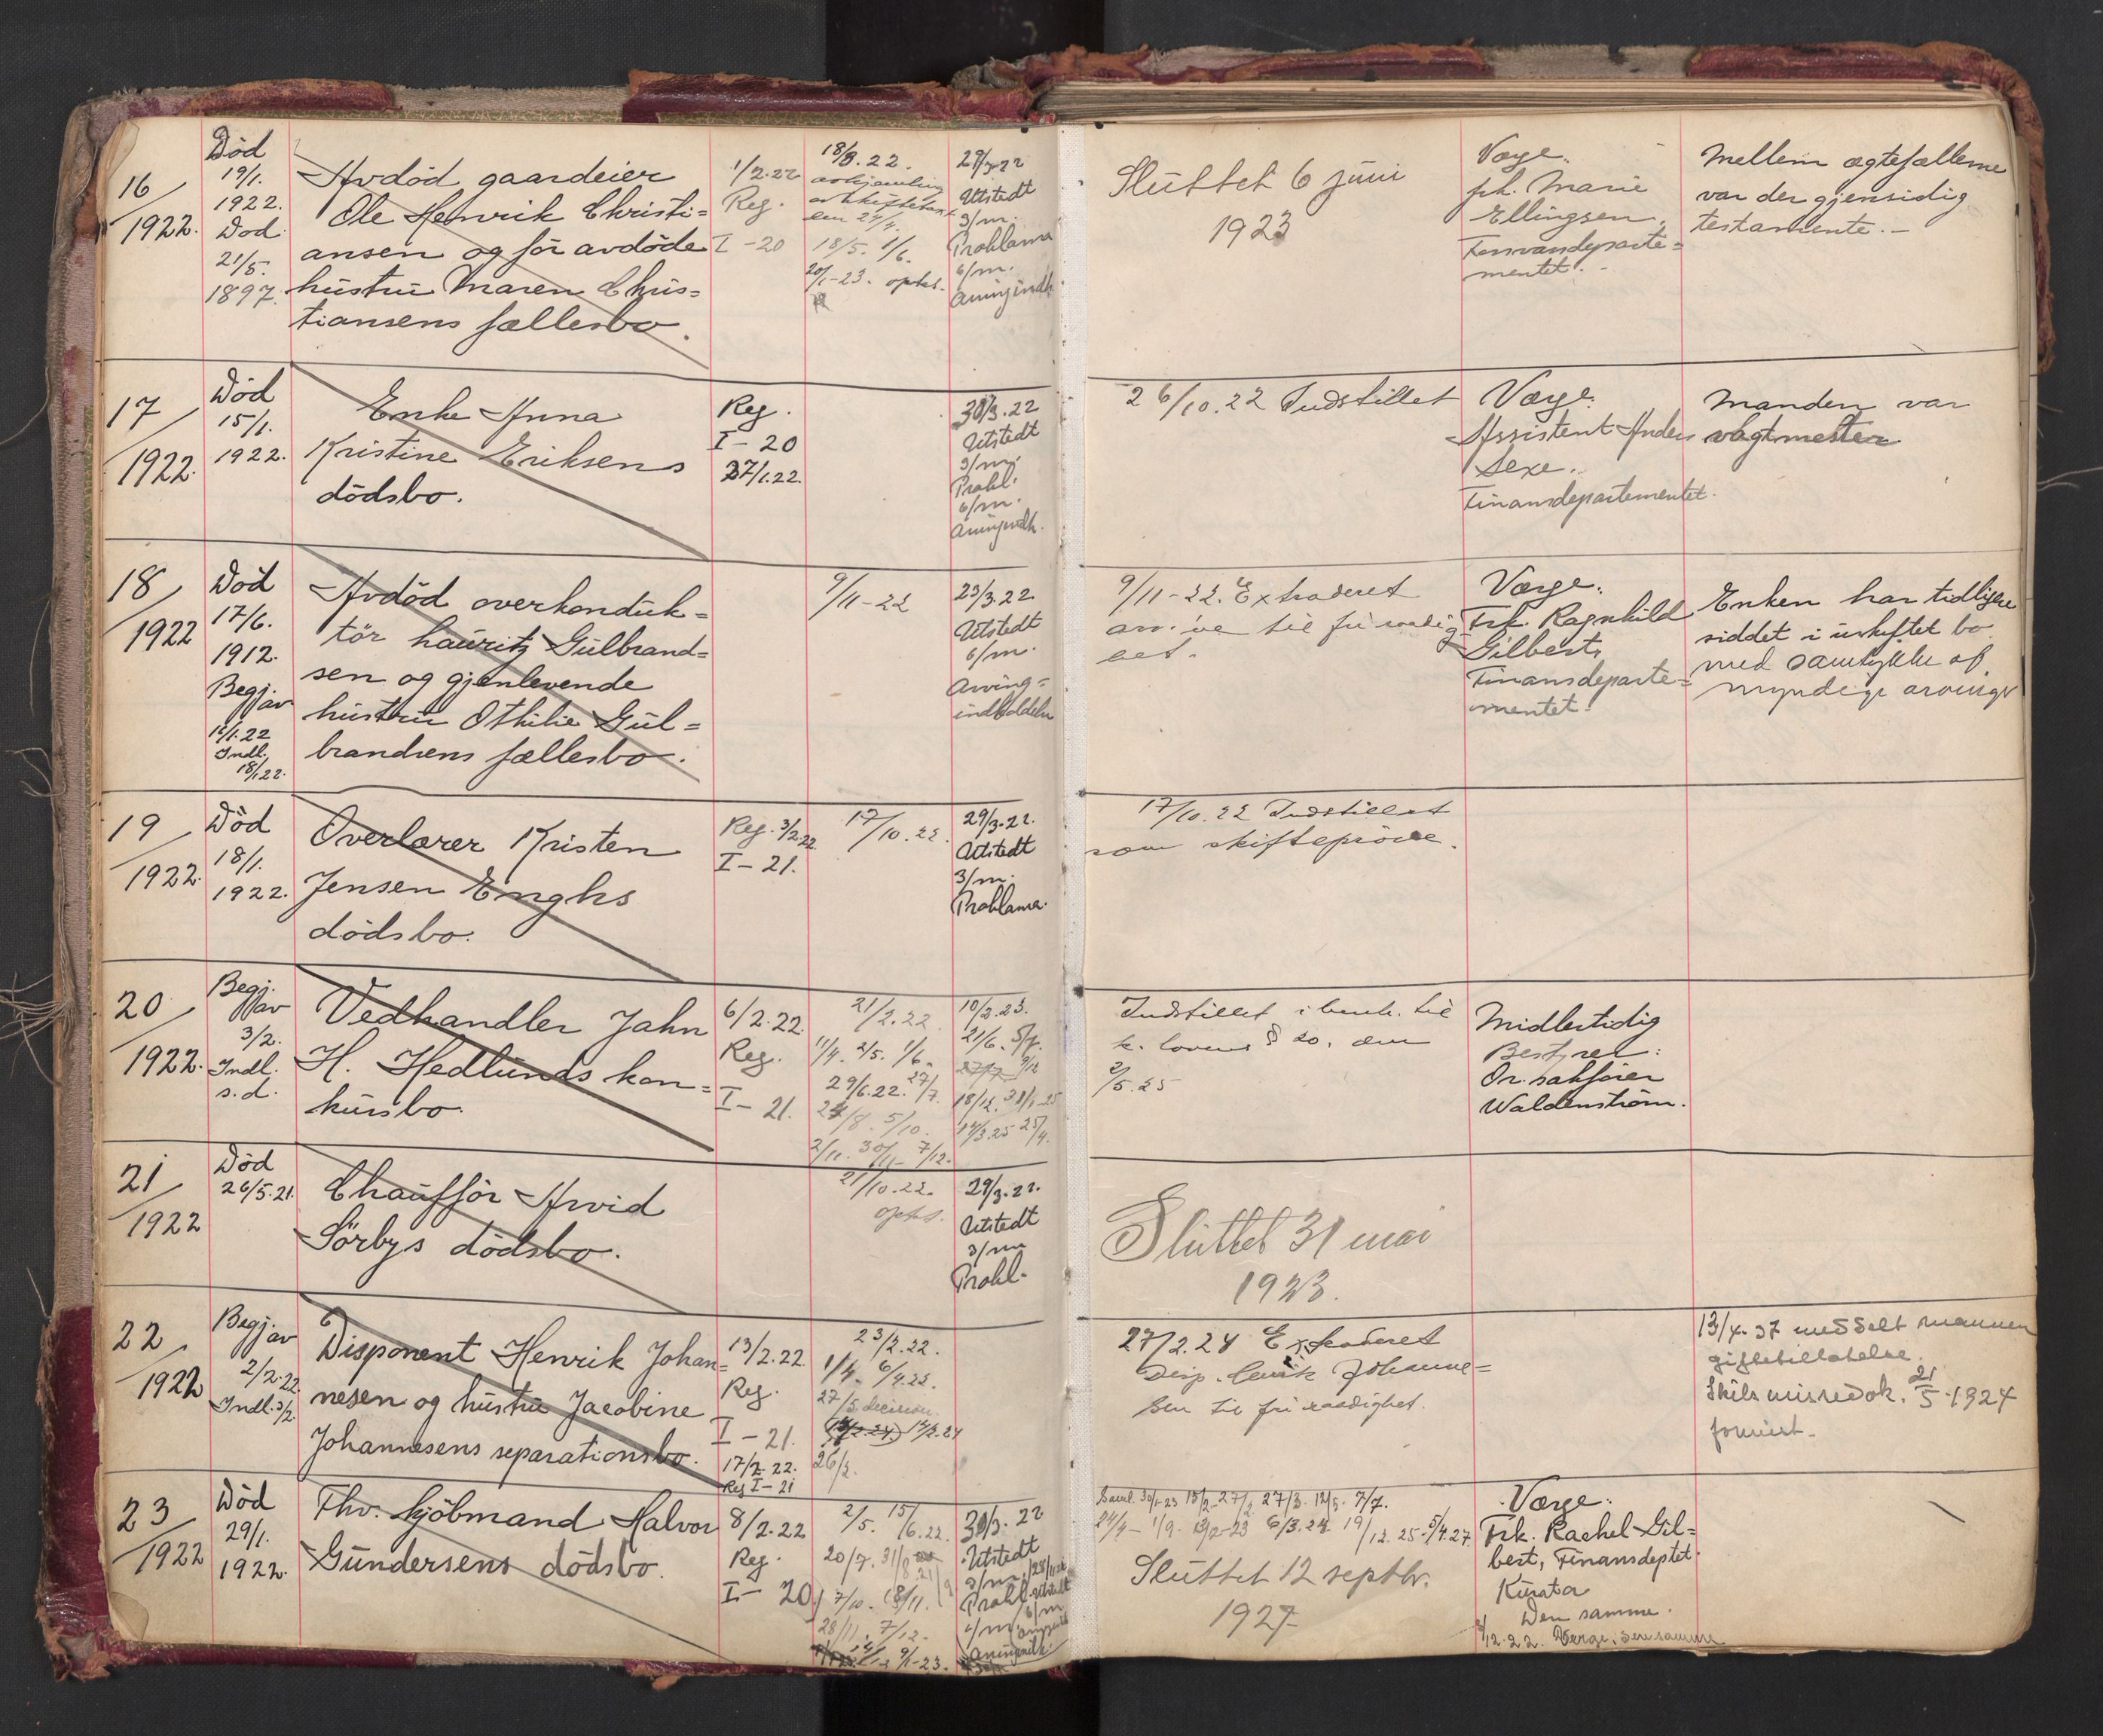 16/1922.
Død
19/1.
1922.
Død
21/5.
1897.
Avdöd gaardeier
Ole Henrik Christi=
ansen og for avdöde
hustru Maren Chris=
tiansens fællesbo.
1/2.22
Reg.
I-20
18/3.22.
18/5. 1/6.
20/1-23. opts.
29/3.22
Utstedt
3/m.
Proklama
6/m.
Sluttet 6 juni
1923
Værge:
frk. Marie
Ellingsen,
Forsvarsdeparte=
mentet.
Mellem ægtefællerne
var der gjensidig
testamente.-
17/1922.
Död
15/1.
1922.
Enke Anna
Kristine Eriksens
dödsbo.
Reg.
I-20
27/1.22.
30/3.22
Utstedt
3/m.
Prokl.
6/m.
26/10.22 Indstillet
Værge:
Assistent Anders
Sexe.
Finansdepartementet.
Manden var
vagtmester
18/1922
Död
17/6.
1912.
Begj. av
Indl.
18/1.22.
Avdöd overkonduk=
tör Lauritz Gulbrand=
sen og gjenlevende
hustru Othilie Gul=
brandsens fællesbo.
9/11-22
23/3.22
Utstedt
6/m.
Arving=
indkaldelse
9/11-22. Extraderet
til fri raadig
het.
Værge:
Frk. Ragnhild
Gilbert,
Finansdeparte=
mentet.
Enken har tidligere
siddet i uskiftet bo
med samtykke af
myndige arvinger
19/1922.
Död
18/1.
1922.
Overlærer Kristen
Jensen Enghs
dödsbo.
Reg. 3/2.22
I-21.
17/10.22.
29/3.22.
Utstedt
3/m.
Proklama.
17/10.22 Indstillet
som skiftepröve.
20/1922.
Begj. av
3/2.
Indl.
s.d.
Vedhandler Jahn
H. Hedlunds kon=
kursbo.
6/2.22.
Reg.
I-21.
21/2.22.
1/4. 2/5. 1/6.
29/6.22. 27/7.
24/8. 5/10.
2/11. 30/11- 7/12.
10/2.23.
21/6. 5/7.
Indstillet i henh. til
k. lovens § 20, den
2/5.25
Midlertidig
Bestyrer:
Or. sakförer
Waldenström.
21/1922
Död
26/5.21.
Chaufför Arvid
Sörbys dödsbo.
21/10.22.
opts.
29/3.22.
Utstedt
3/m
Prokl.
Sluttet 31 mai
1923.
22/1922
Begj. av
2/2.22.
Indl. 3/2.
Disponent Henrik Johan=
nesen og hustru Jacobine
Johannesens separationsbo.
13/2.22.
Reg.
I-21.
17/2.22.
Reg I-21
23/2.22.
1/4. 6/4.22.
27/5. decision.
14/2.24
26/2.
27/2.24 Extraderet
Disp. Henrik Johanne=
sen til fri raadighet.
13/4.37 meddelt mannen
giftetillatelse.
Skilsmissedok. 21/5-1924
forevist.
23/1922
Död
29/1.
1922.
Fhv. kjöbmand Halvor
Gundersens dödsbo.
8/2.22
Reg.
I-20
2/5. 15/6.22.
20/7. 31/8
7/10. 8/11.
28/11. 7/12.
9/1-23.
30/3.22
Utstedt
3/m.
Prokl.
6/m.
27/3. 12/5. 7/7.
24/4- 1/9. 6/3.24 19/12.25. 5/4.27.
Sluttet 12 septbr.
1927
Værge:
Frk. Rachel Gil=
bert, Finansdeptet.
Kurator
Den samme.
12.22. Værge: den samme